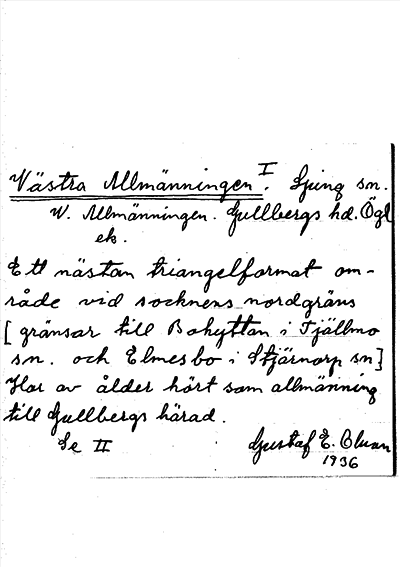 Västra Allmänningen I. Ljung sn.
W. Allmänningen. Gullbergs hd. Ögl
ek.
Ett nästan triangelformat om-
råde vid socknens nordgräns
[gränsar till Bohyttan i Tjällmo
sn. och Elmesbo i Stjärnorp sn]
Har av ålder hört som allmänning
till Gullbergs härad.
Se II
Gustaf E. Olsson
1936